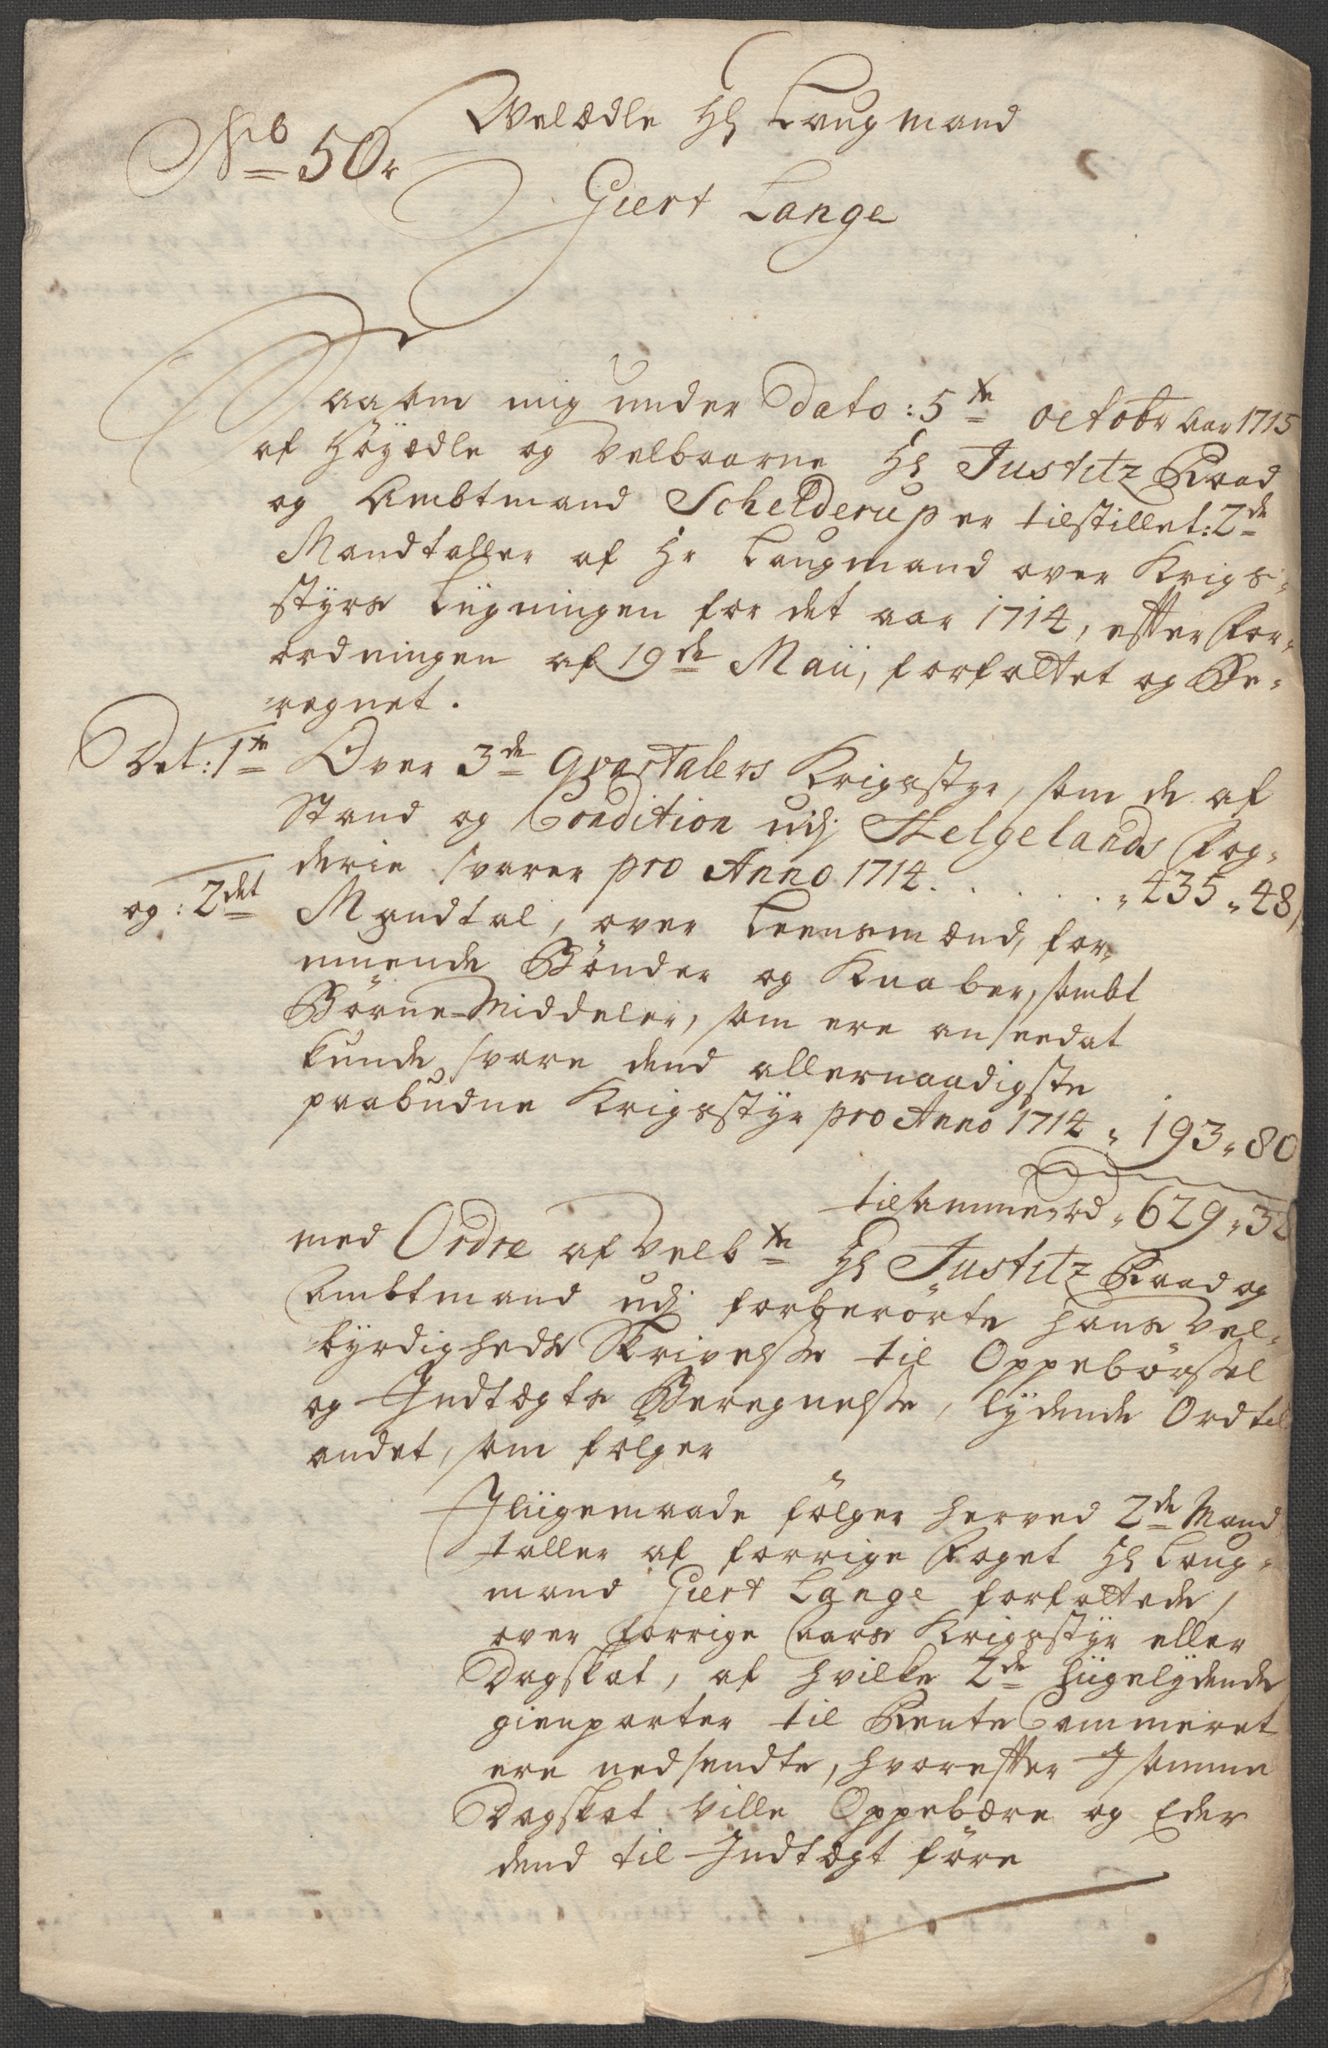 No 50
Welædle Hr Laugmand
Giert Lange
Saasom mig under Dato: 5te octobr Aar 1715
af Höyædle og Velbaarne Hr Justitz Raad
og Ambtmand Schelderup er tilstillet: 2de
Mandtaller af Hr Laugmand over Krigs-
styrs Liigningen for det aar 1714, effter For-
ordningen af 19de Maii, forfattet og Be-
regnet.
Det: 1te Over 3de qvartalers Krigsstyr, som de af
Stand og Condition udj Helgelands Fog-
derie svarer pro Anno 1714 . . . . . „ 435 „ 48
og: 2det Mandtal, over Leensmænd, for-
muende Bönder og Knaber, sambt
Börne-Middeler, som ere anseed at
kunde svare dend allernaadigste
paabudne Krigsstyr pro Anno 1714 „ 193 „ 80
tilsammen rd „ 629 „ 38
med Ordre af Velbne Hr Justitz Raad og
Ambtmand udj forberörte hans Vel-
byrdigheds Skrivelse til Oppebörsel
og Indtægts Beregnelse, lydende Ord til
andet, som fölger
Iliigemaade fölger herved 2de Mand
taller af forrige Foget Hr Laug-
mand Giert Lange forfattede,
over forrige Aars Krigsstyr eller
Dagskat, af hvilke 2de liigelydende
gienparter til Rente Cammeret
ere nedsendte, hvoreffter I samme
Dagskat ville Oppebære og Eder
dend til Indtægt före